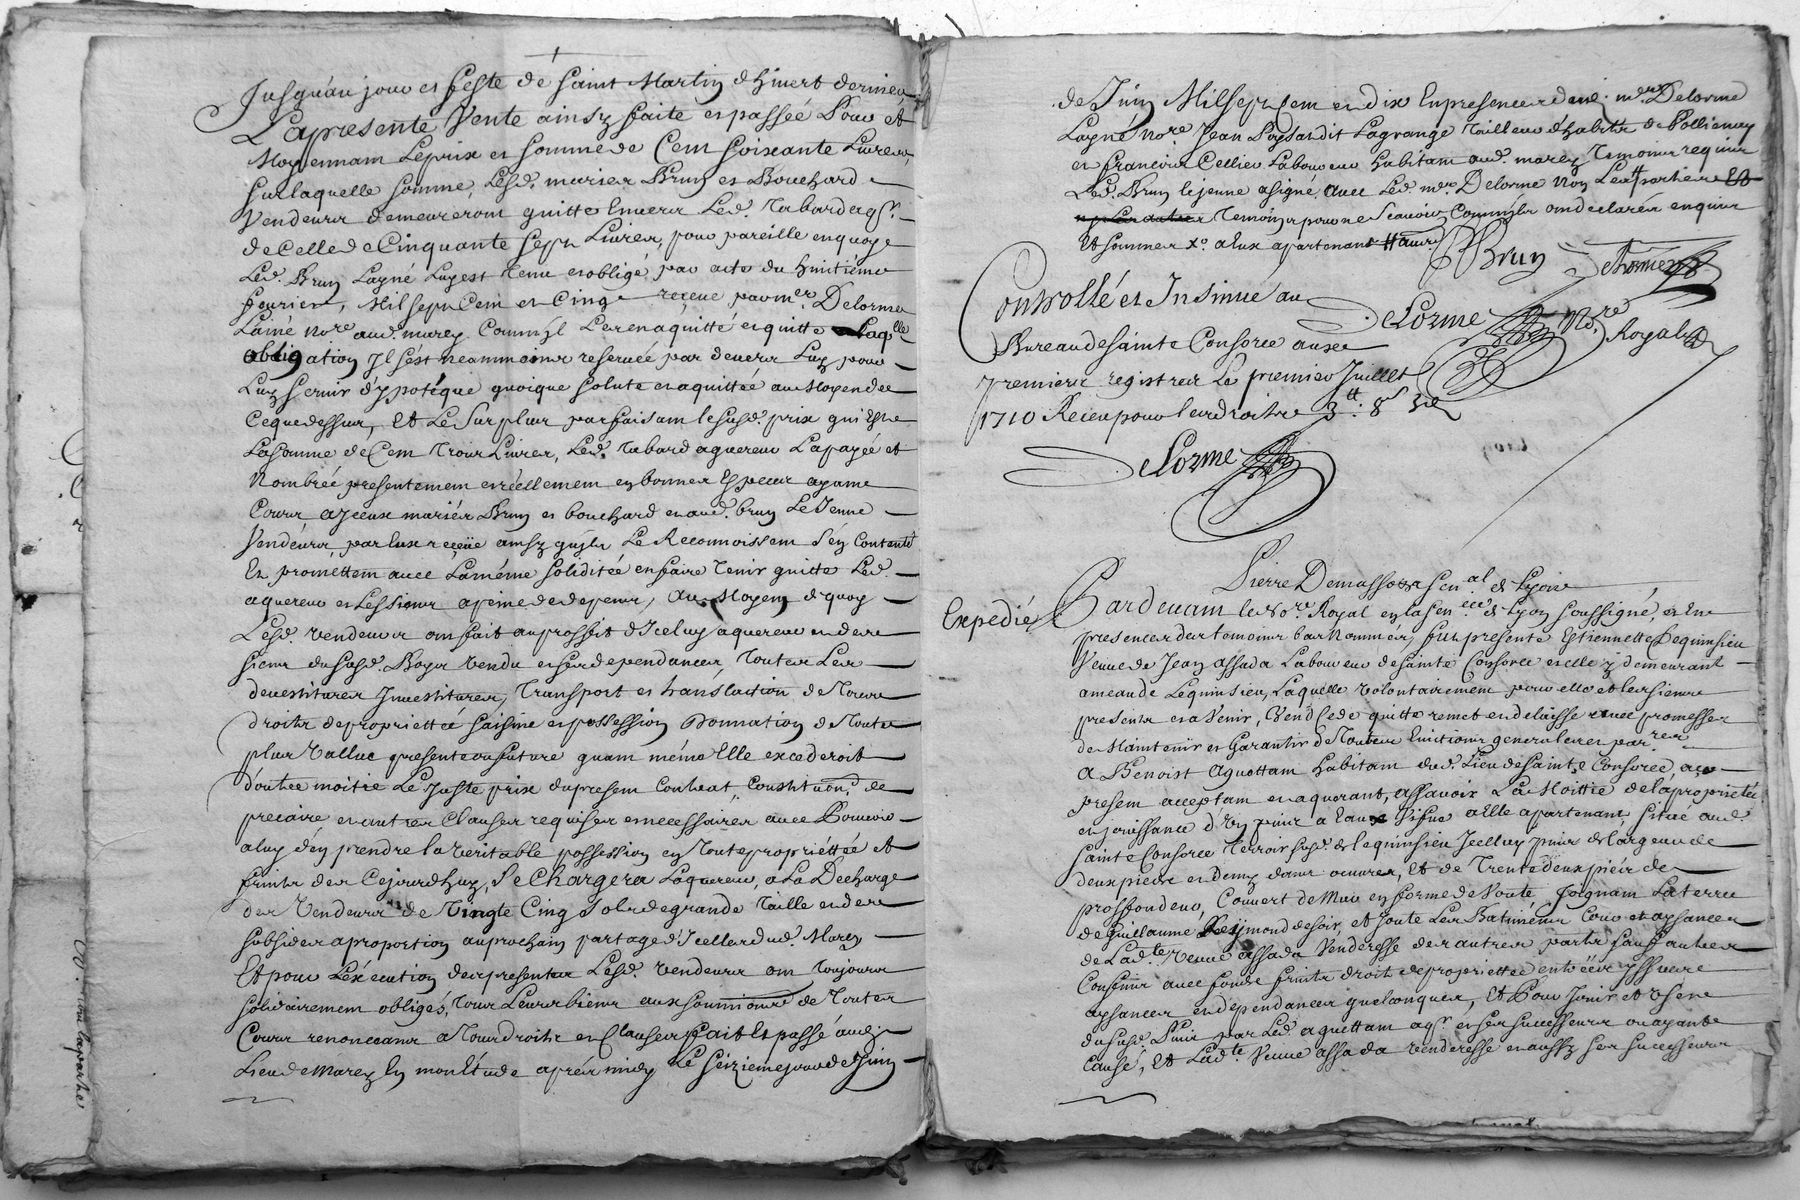 Jusqu'au jour et feste de saint Martin d'hivert dernier
La presente Vente ainsy faite et passée Pour et
Moyennant Le prix et somme de Cent soixante Livres,
sur laquelle somme, Lesd. mariez Brun et Bouchard
Vendeurs demeureront quitte Envers Led. Tabard aqr.
de Celle de Cinquante sept Livres, pour pareille en quoy
Led. Brun Layné Luy est Tenu et obligé par acte du huitieme
feurier, Mil sept Cent et Cinq reçeue par mer. Delorme
Lainé nore. aud. marcy Comm'il L'eren aquitté et quitte Laqlle
obligation Il s'est neammoins reservée par devers Luy pour
Luy servir d'ypotéque quoique solute et aquittée au Moyen de
Ce que dessus, Et Le surplus parfaisant le susd. prix qui Est
La somme de Cent Trois Livres, Led. Tabard aquereur La payée et
Nombrée presentement et réellement en bonnes Especes ayant
Cours ausd. mariés Brun et bouchard et aud. brun Le Jeune
Vendeurs, par Eux reçeüe ainsy qu'ils Le Reconnoissent s'en Contenté
Et promettent avec La même solidité en faire Tenir quitte Led.
aquereur et Les siens a peine de depens, Au Moyen de quoy
Lesd. vendeurs ont fait au proffit d'Iceluy aquereur et des
siens du susd. Boys vendu et ses dependances, Toutes Les
devestitures Jnvestitures, Transport et translation de Tous
droits de proprietteé saisine et possession Donnation de Toute
plus Vallue presente ou future quant même Elle excederoit
d'outre moitié Le Juste prix du present Contrat, Constituon. de
precaire et autres Clauses requises et necessaires avec Pouvoir
a luy d'en prendre la veritable possession en Toute propriettée et
fruits des Cejourd'huy, se Chargera Laquereur, a La Decharge
des Vendeurs de Vingte Cinq sols de grande Taille et des
subsides a proportion au prochain partage d'Icelles dud. Marcy
Et pour L'éxecution des presentes Lesd. vendeurs ont Toujours
solidairement obligés, Tous Leurs biens aux soumissions de Toutes
Cours renonceans a Tous droits et Clauses fait Et passé aud.
Lieu de Marcy En mon Etude aprés midy Le seizieme jour de Juin
de Juin Mil sept Cent et dix En presence de me. mer. Delorme
Layné nore. Jean Lagrange Tailleur d'habits de Pollienay
et françois Cellier Laboureur habitant aud. marcy Temoins requis
Led. Brun le jeune a signé avec Led. mer. Delorme Non Les partiers
Temoins pour ne scavoir Comm'ils ont declarés enquis
Et sommés
Brun
Delorme
Delorme Nore Royal
Controllé et Insinué au
Bureau de sainte Consorce aux
premiers registres Le premier Juillet
1710 Receu pour les droits 3tt. 8s
Delorme
Pierre Demasso
Expedié
Pardevant le Nore. Royal en la sencée. de Lyon soussigné, et En
presence des temoins bas Nommés, fut presente Estiennette Lequinsieu
Veuve de Jean assada Laboureur de sainte Consorce et elle y demeurant
ameau de Lequinsieu, Laquelle volontairement pour elle et les siens
presents et a Venir, Vend Cede quitte remet et delaisse avec promesses
de Maintenir et Garantir de Toutes Evictions generales et parres
A Benoist aguettant habitant dud. Lieu de sainte Consorce, acy
present acceptant et aquerant, assavoir La Moittié de la proprieté
et jouissance d'Un puis a Eau Sifue a Elle apartenant, situé aud.
sainte Consorce Terroir susd. de lequinsieu Jcelluy puis de largeur de
deux pieds et Demy dans oeuvres, Et de Trente deux pieds de
proffondeur, Couvert de Mur en forme de Voute, Joignant La terre
de Guillaume Reymond de soir, et Joute Les Batiments Cour et aysances
de Ladte. Veuve assada Venderesse des autres parts sauf autres
Confins avec fonds fruits droit de propriettée entrées yssues
aysances et dependances quelconques, Et Pour Jouir et Vser
du susd. Puis par Led. aguettant aqr. et ses successeurs ou ayants
cause, Et Ladte. Veuve assada venderesse et aussy ses successeurs